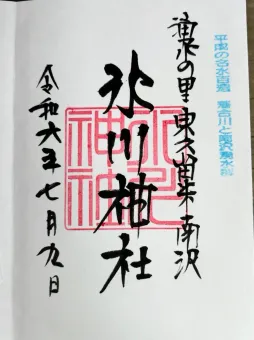 平成の名水百選 落合川と南沢湧水群
湧水の里東久留米南沢
氷川神社
氷川
神社
令和六年七月九日